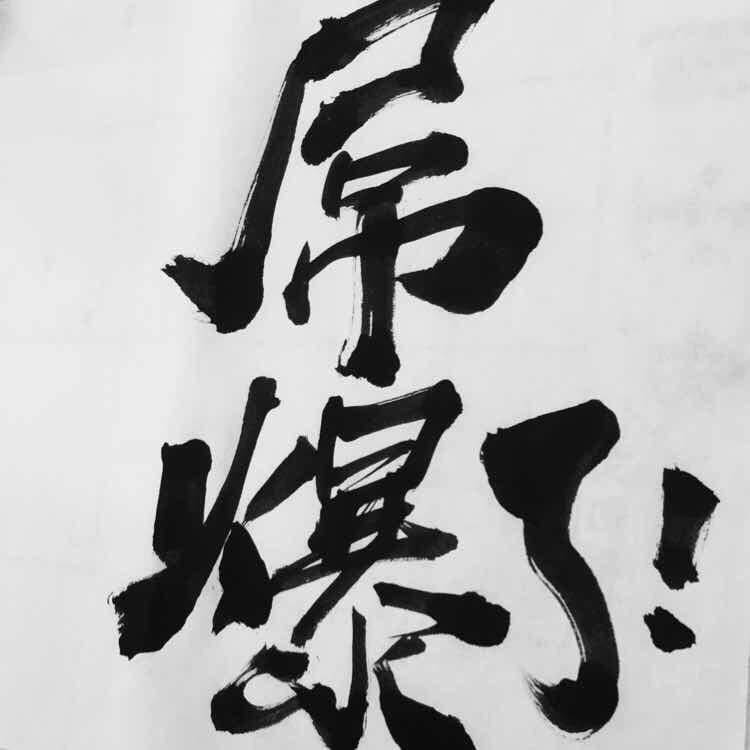 屌
爆了!